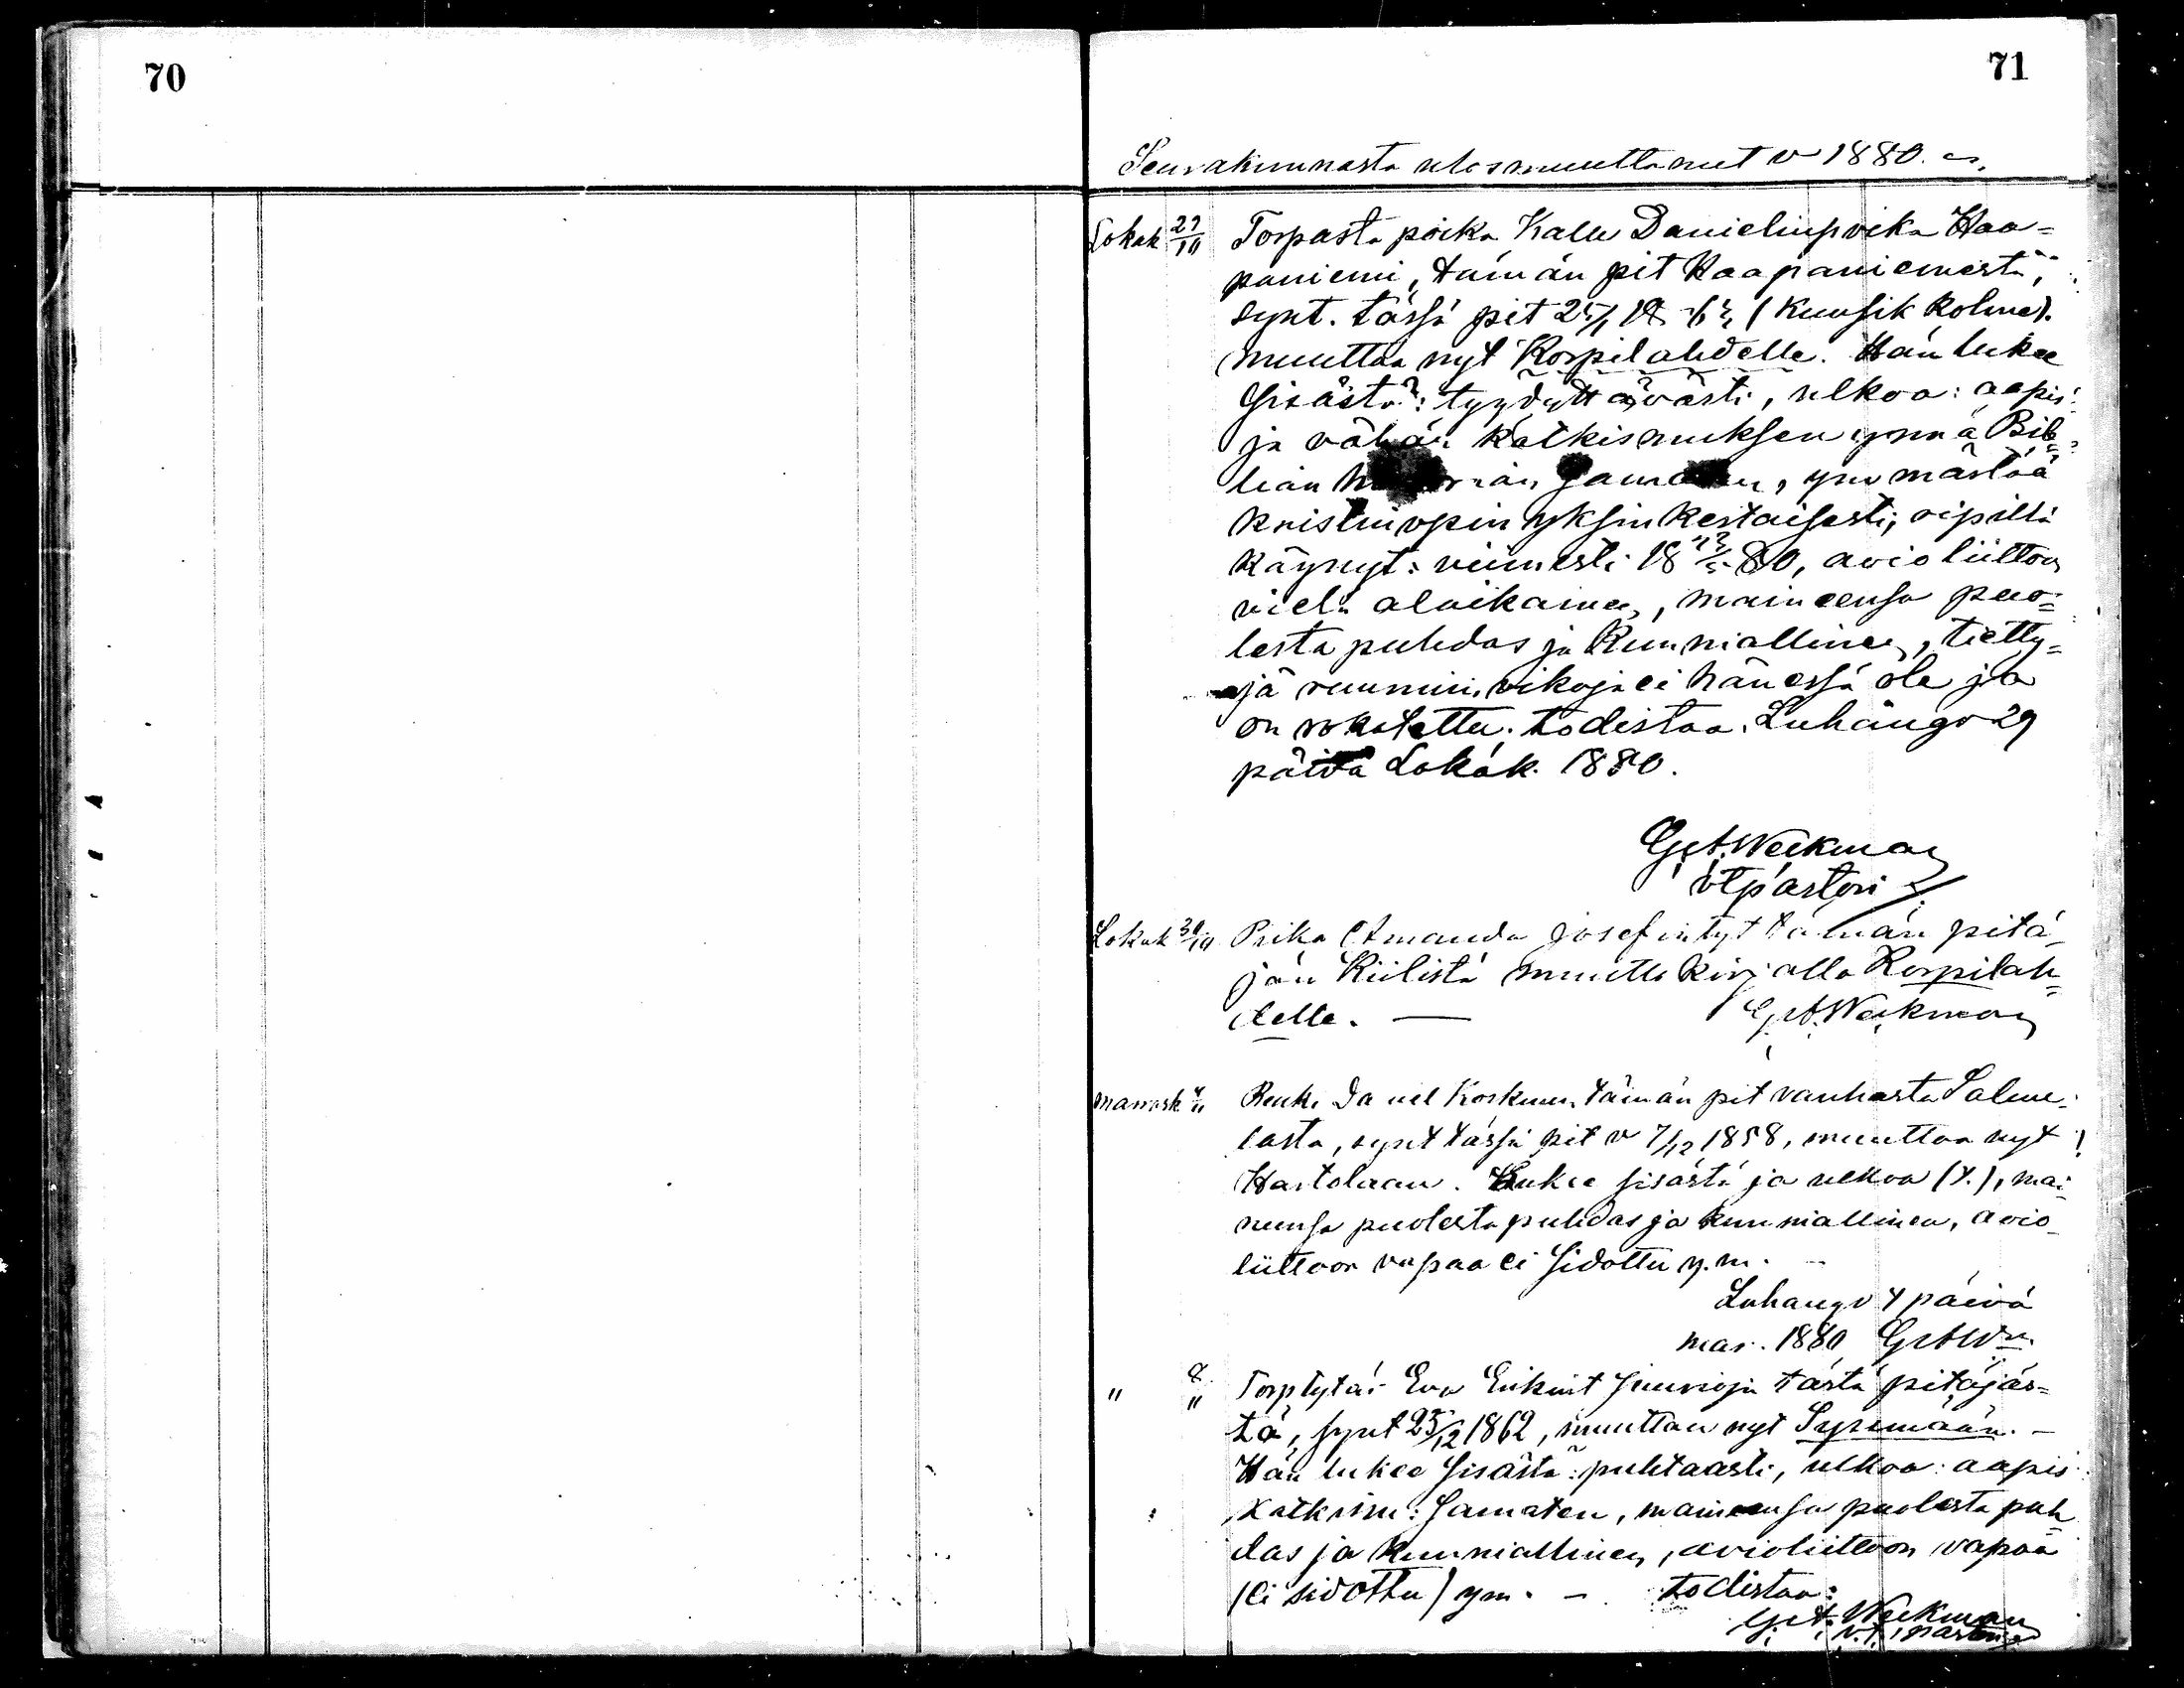 70
71
Seurakunnasta ulosmuuttanut v 1880.
Lokak 29/10 Torpasta poika Kalle Danielinpoika Haa=
paniemi, tämän pit Haapaniemestä,
synt. tässä pit 25/1 18 63 (kuusik kolme).
muuttaa nyt Korpilahdelle. Hän lukee
sisästä: tyydyttävästi, ulkoa: aapis:
ja vähän katkismuksen ynnä Bib=
lian samaten, ymmärtää
kristinopin yksinkertaisesti, ripillä
käynyt: viimesti 18 80, avioliittoon
vielä alaikainen, maineensa puo=
lesta puhdas ja kunniallinen, tietty=
jä ruumiin vikoja ei hänessä ole ja
on rokotettu. todistaa. Luhango 29
päivä Lokak. 1880.
G. A. Weckman
vt pastori
Lokak 30/10 Piika Amanda Josefintyt tämän pitä=
jän Kiilistä muuttokirjalla Korpilah=
delle. — G. A. Weckman
marrask 4/11 Renki Daniel Koskinen tämän pit vanhasta Salme=
lasta, synt tässä pit v 7/12 1858, muuttaa nyt
Hartolaan. Lukee sisästä ja ulkoa (t.), mai=
neensa puolesta puhdas ja kunniallinen, avio=
liittoon vapaa ei sidottu y.m.
Luhango 4 päivä
mar. 1880 G A W
" 8/11 Torp tytär Eva Erikint tästä pitäjäs=
tä, synt 25/12 1862, muuttaa nyt Sysmään. —
Hän lukee sisästä: puhtaasti, ulkoa: aapis
katkism: samaten, maineensa puolesta puh=
das ja kunniallinen, avioliittoon vapaa
(ei sidottu) ym. — todistaa:
G. A. Weckman
v.t. pastori